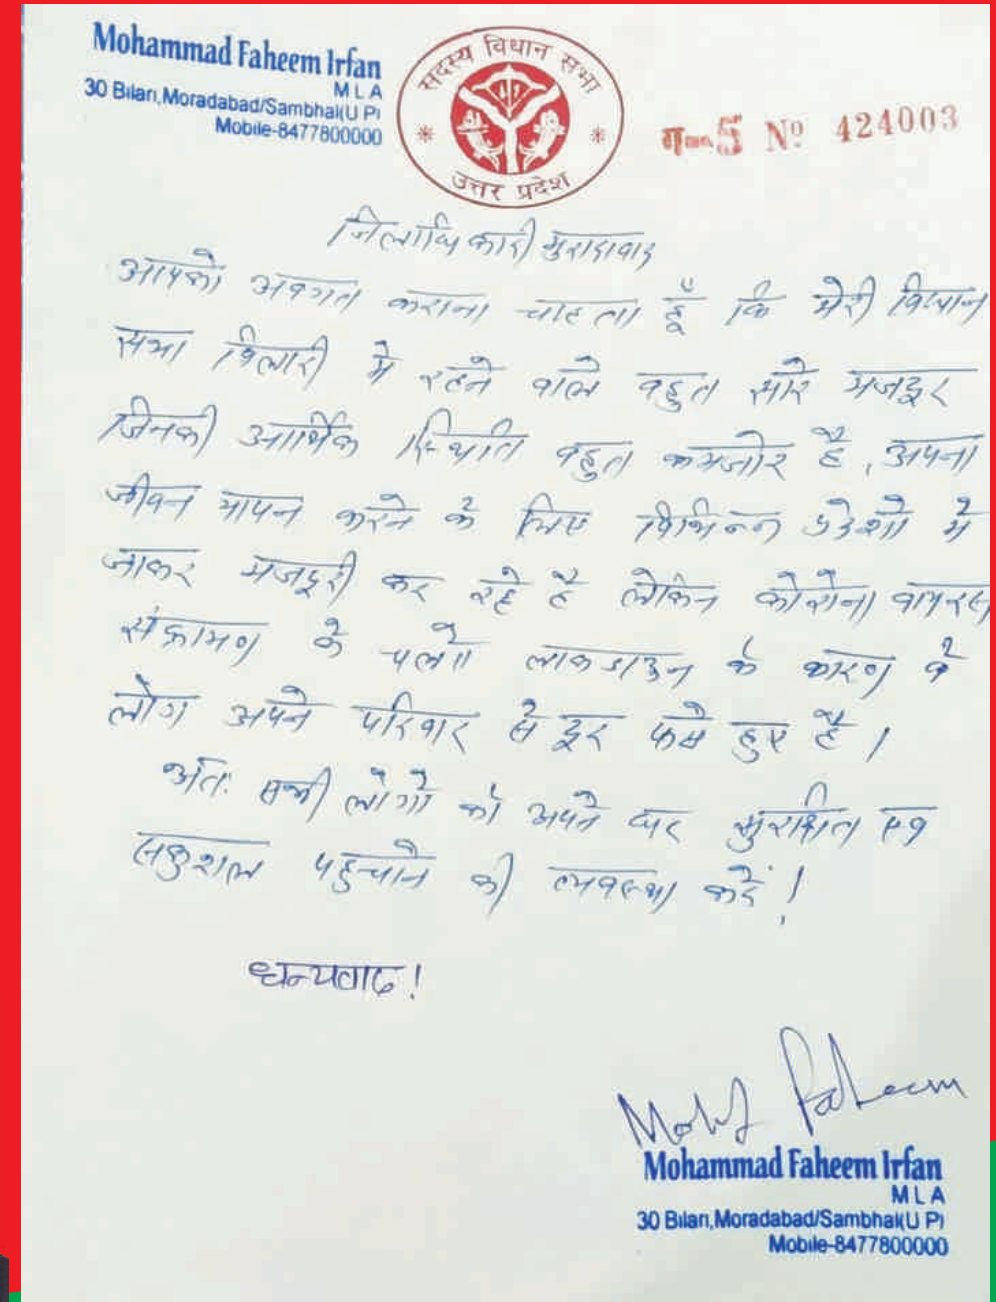 Mohammad Faheem Irfan
MLA
30 Bilari, Moradabad/Sambhal(U P)
Mobile-8477800000
सदस्य विधान सभा
उत्तर प्रदेश
5 Nº 424003
जिलाधिकारी मुरादाबाद
आपको अवगत कराना चाहता हूँ कि मेरी विधान
सभा बिलारी मे रहने वाले बहुत सारे मजदूर
जिनकी आर्थिक स्थिति बहुत कमजोर है, अपना
जीवन यापन करने के लिए विभिन्न प्रदेशो मे
जाकर मजदूरी कर रहे है लेकिन कोरोना वायरस
संक्रामण के चलते लाकडाउन के कारण वे
लोग अपने परिवार से दूर फसे हुए है ।
अतः सभी लोगो को अपने घर सुरक्षित एव
सकुशल पहुचाने की व्यवस्था करें !
धन्यवाद !
Mohd Faheem
Mohammad Faheem Irfan
MLA
30 Bilari, Moradabad/Sambhal(U P)
Mobile-8477800000